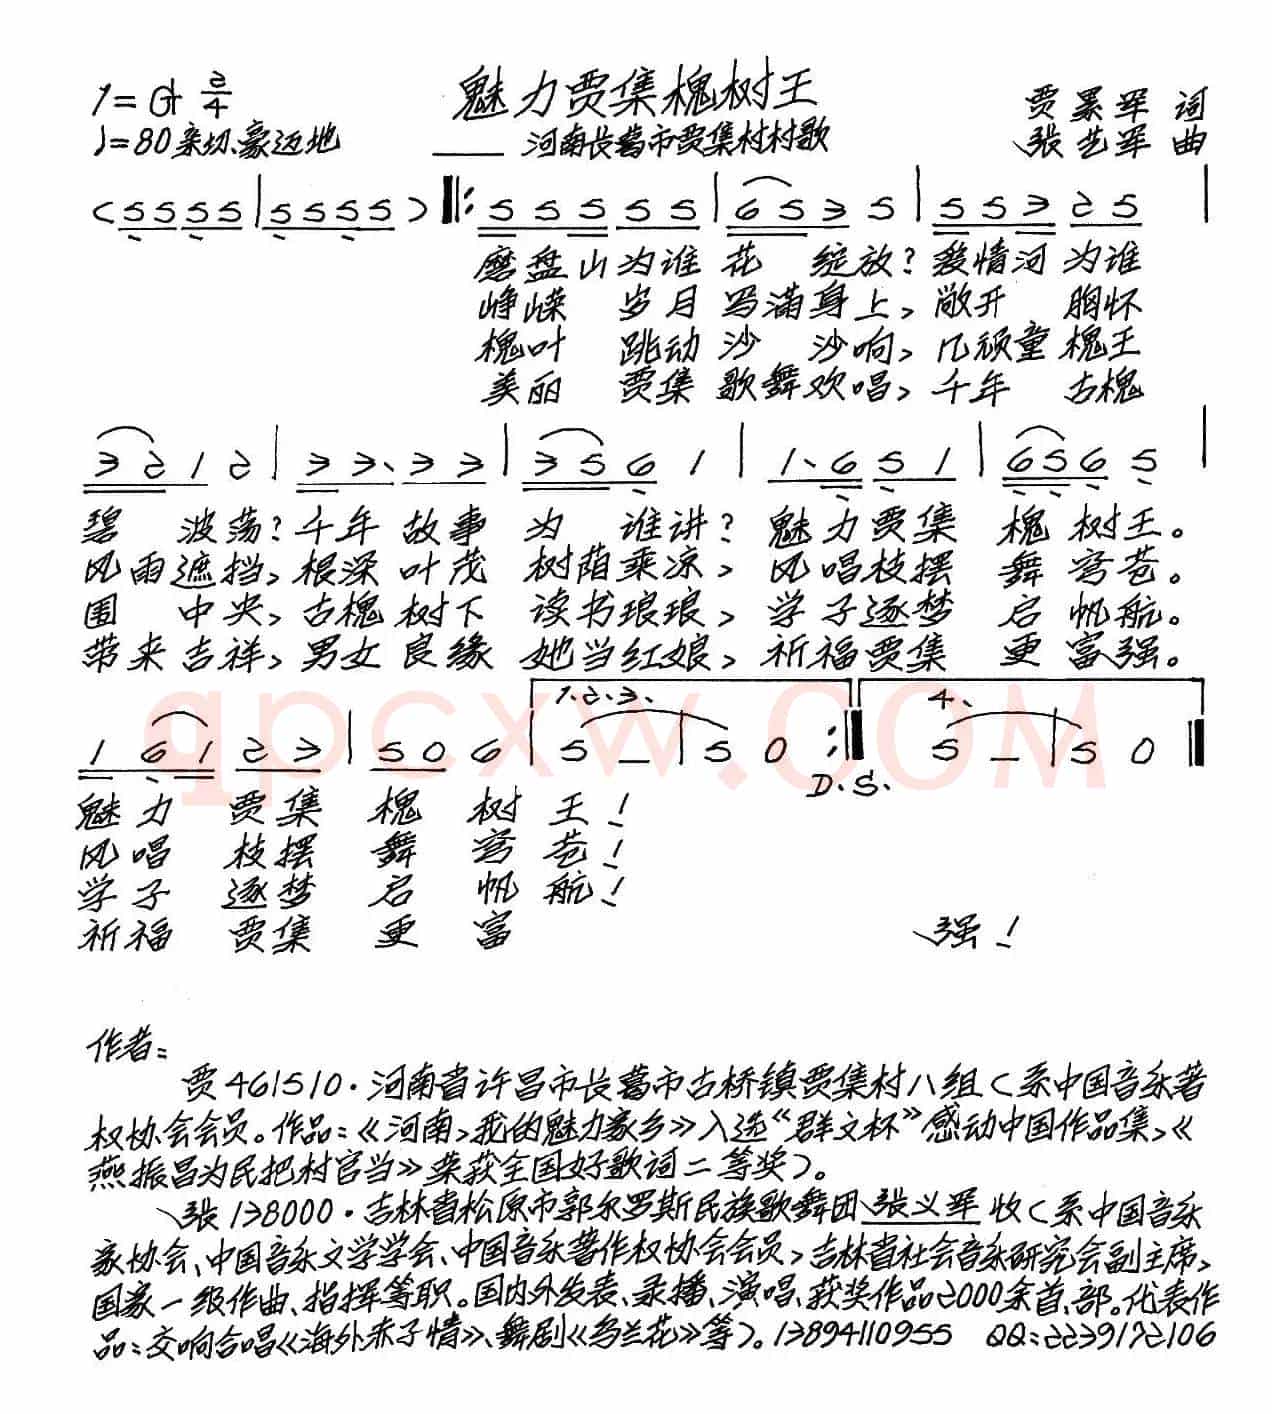 1=G 2/4
魅力贾集槐树王
贾累军 词
♩=80 亲切、豪迈地
—— 河南长葛市贾集村村歌
张艺军 曲
(5555|5555)‖:55555|6535|55325|
磨盘山为谁花 绽放?爱情河为谁
峥嵘 岁月写满身上,敞开 胸怀
槐叶 跳动沙 沙响,几顽童槐王
美丽 贾集歌舞欢唱,千年 古槐
3212|33·33|3561|1·651|6565|
碧 波荡?千年故事为 谁讲?魅力贾集 槐树王。
风雨遮挡,根深叶茂 树荫乘凉,风唱枝摆 舞穹苍。
围 中央,古槐树下 读书琅琅,学子逐梦 启帆航。
带来吉祥,男女良缘 她当红娘,祈福贾集 更富强。
1.2.3.
4.
16123|506|5—|50:‖5—|50‖
D.S.
魅力 贾集 槐 树 王!
风唱 枝摆 舞 穹 苍!
学子 逐梦 启 帆 航!
祈福 贾集 更 富 强!
qpcxw.COM
作者:
贾461510·河南省许昌市长葛市古桥镇贾集村八组(系中国音乐著
权协会会员。作品:《河南,我的魅力家乡》入选“群文杯”感动中国作品集,《
燕振昌为民把村官当》荣获全国好歌词二等奖)。
张138000·吉林省松原市郭尔罗斯民族歌舞团张义军收(系中国音乐
家协会、中国音乐文学学会、中国音乐著作权协会会员,吉林省社会音乐研究会副主席,
国家一级作曲、指挥等职。国内外发表、录播、演唱、获奖作品2000余首、部。代表作
品:交响合唱《海外赤子情》、舞剧《乌兰花》等)。13894110955 QQ:2239172106